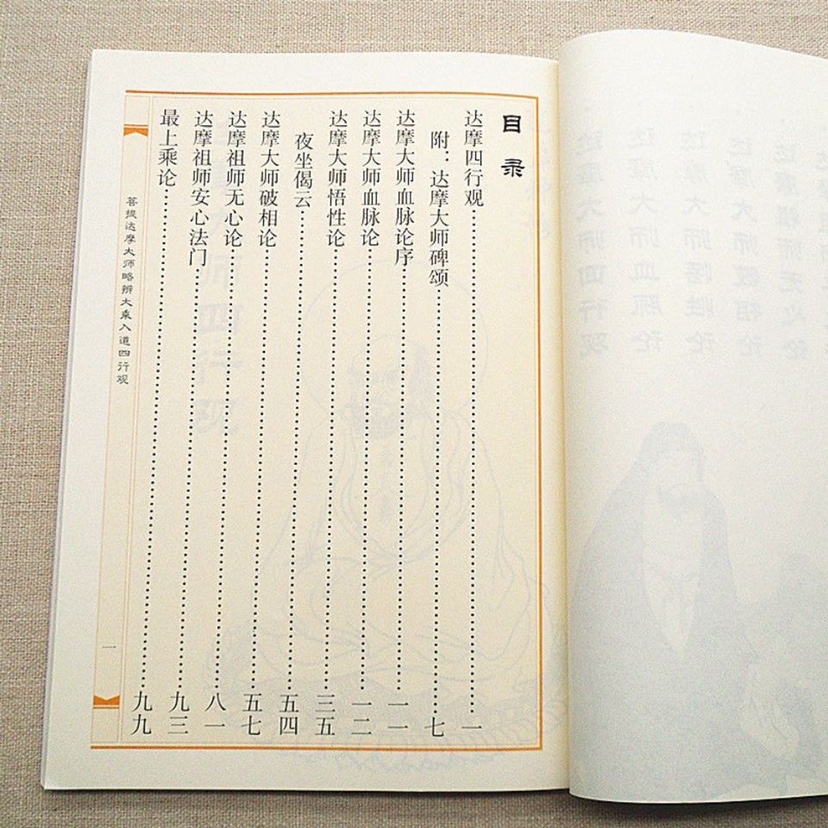 目录
达摩四行观……一
附：达摩大师碑颂……七
达摩大师血脉论序……一一
达摩大师血脉论……一二
达摩大师悟性论……三五
夜坐偈云……五四
达摩大师破相论……五七
达摩祖师无心论……八一
达摩祖师安心法门……九三
最上乘论……九九
菩提达摩大师略辨大乘入道四行观
一